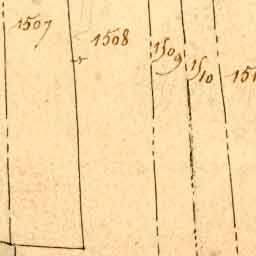 1507
1508
1509
1510